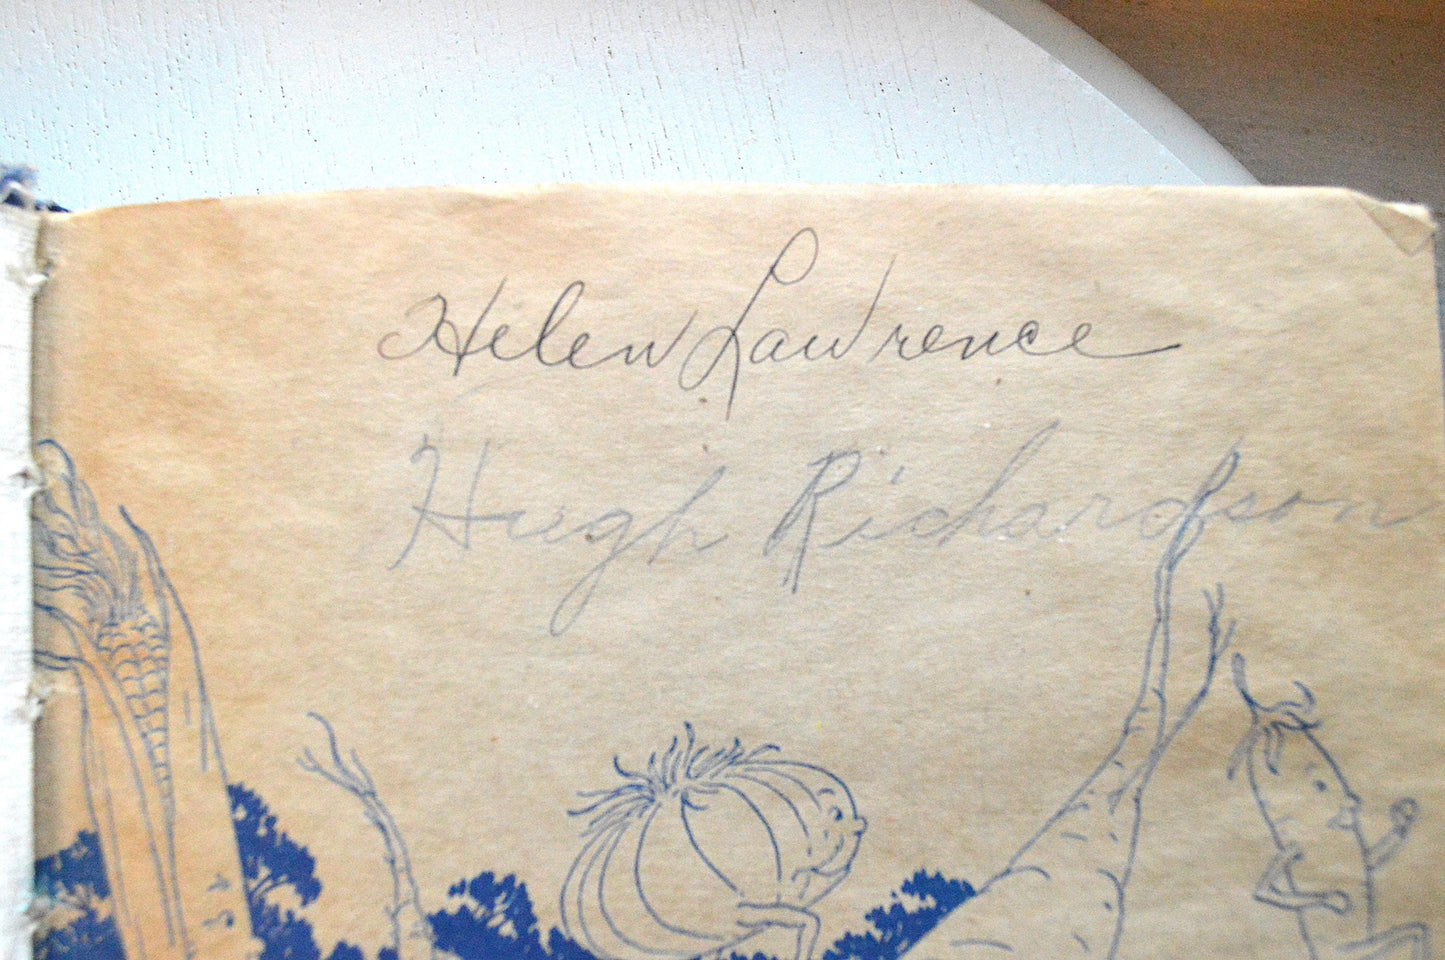 Helen Lawrence
Hugh Richardson